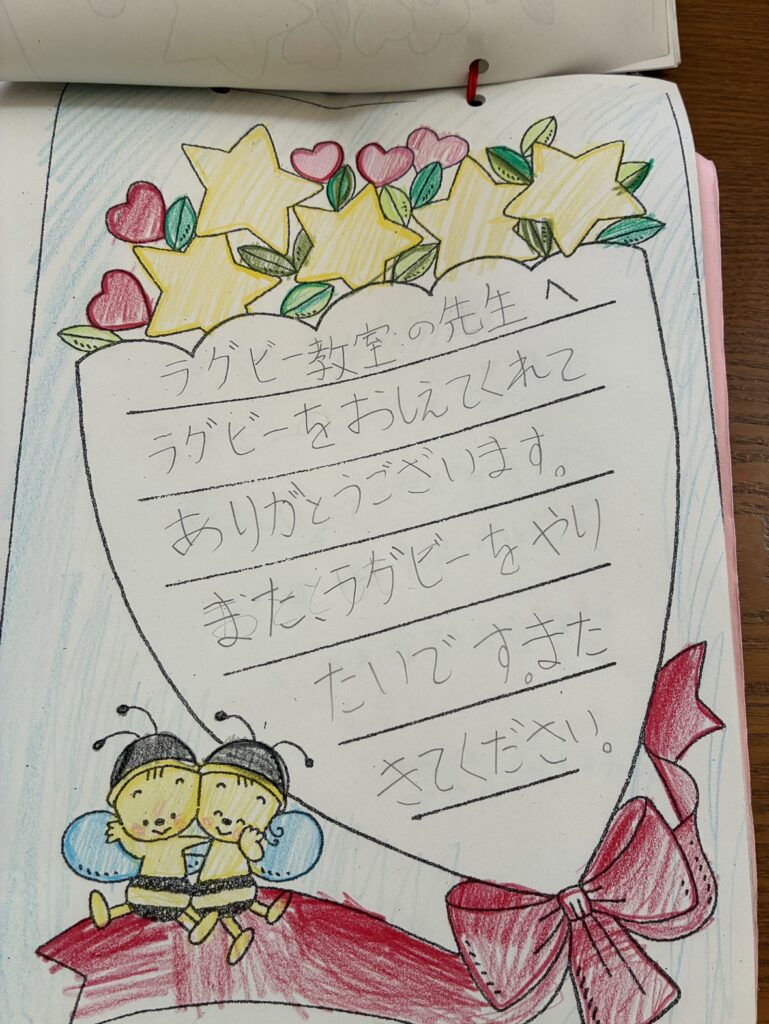 ラグビー教室の先生へ
ラグビーをおしえてくれて
ありがとうございます。
また、ラグビーをやり
たいです。また
きてください。